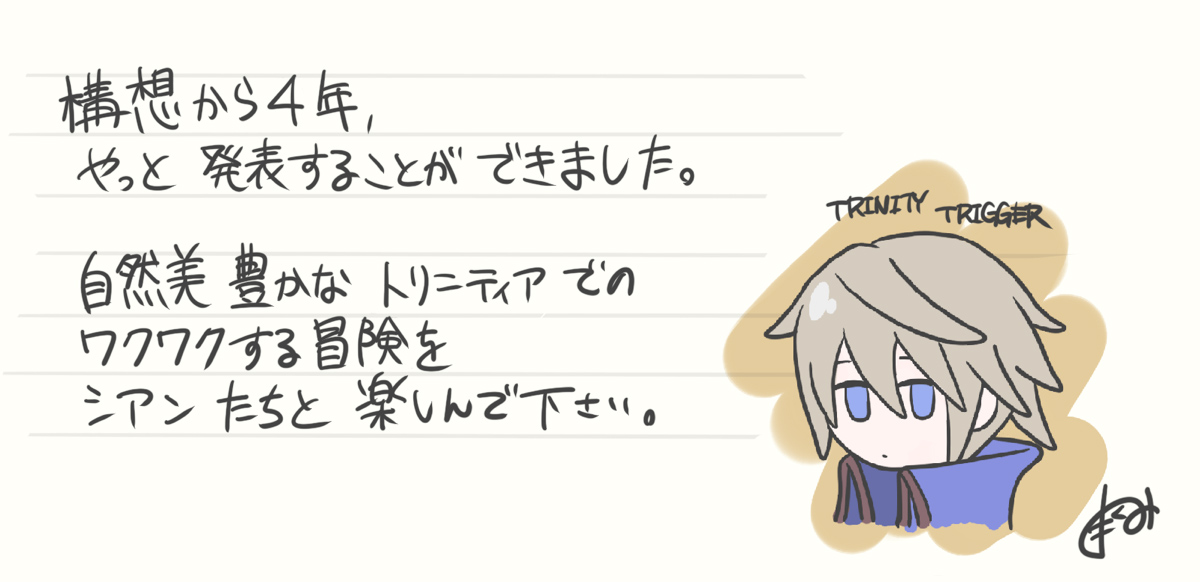 構想から4年,
やっと発表することができました。
自然美豊かなトリニティアでの
ワクワクする冒険を
シアンたちと楽しんで下さい。
TRINITY TRIGGER